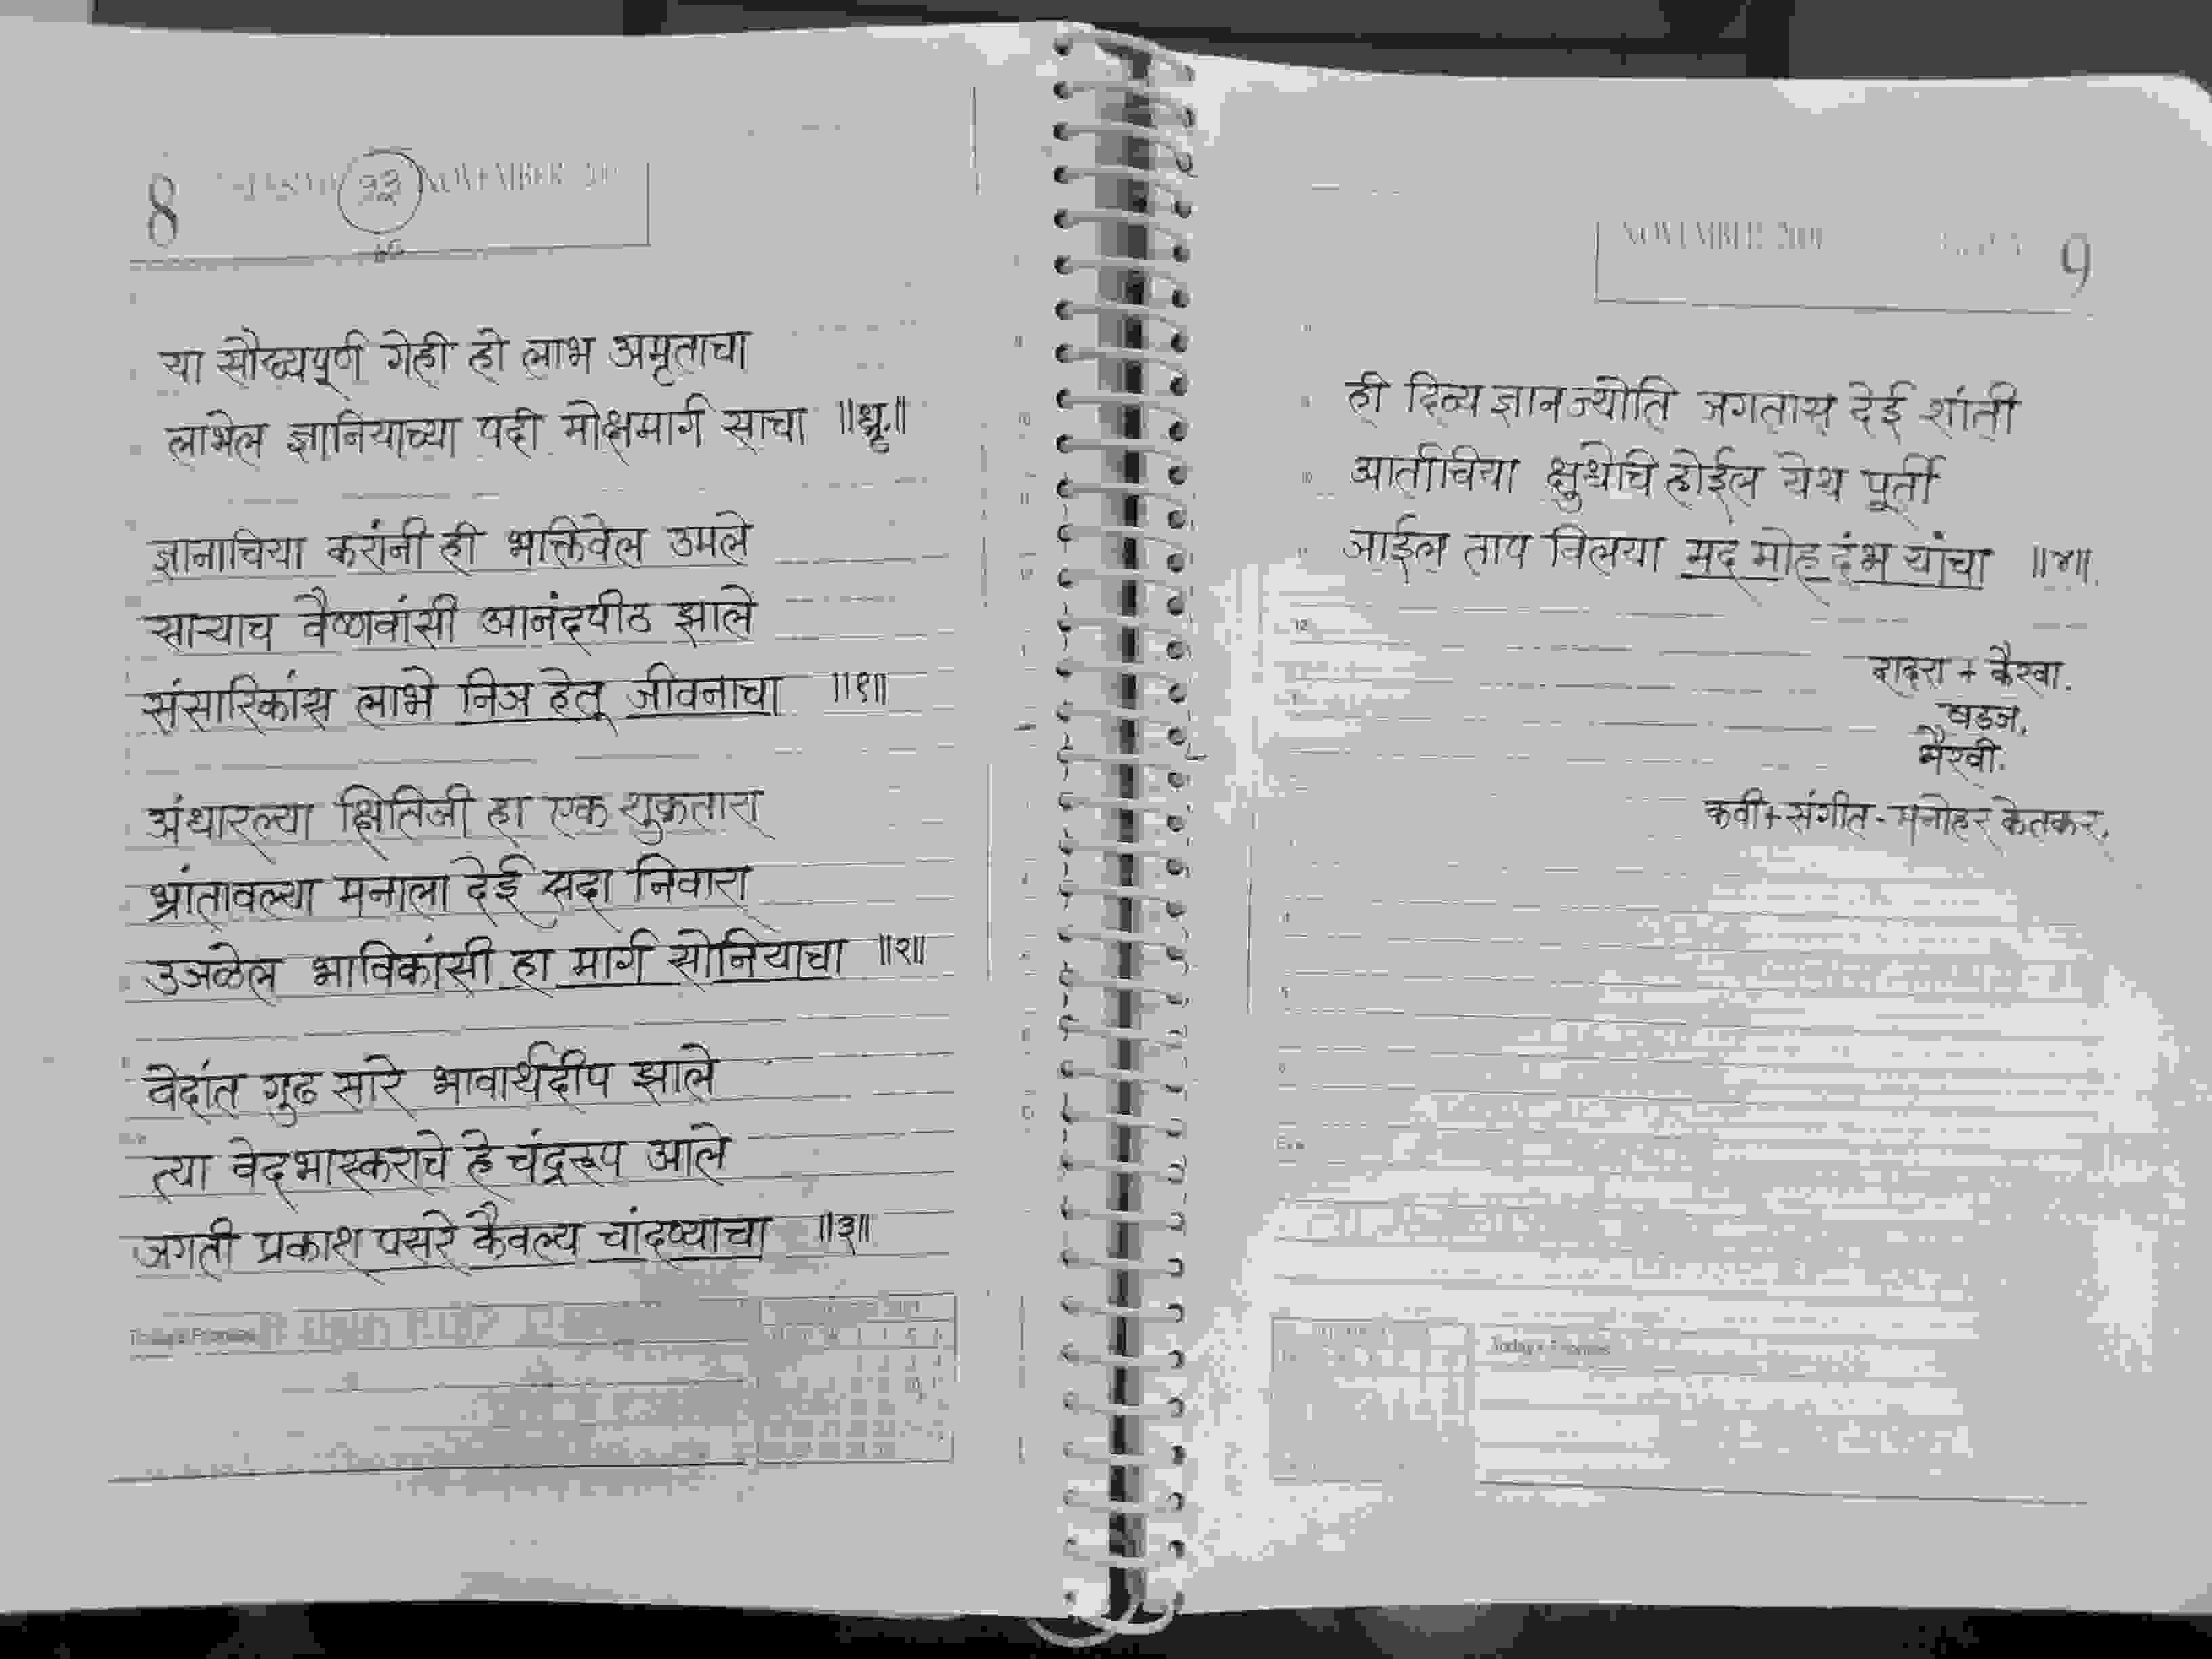 8
NOVEMBER
या सौख्यपूर्ण गेही हो लाभ अमृताचा
लाभेल ज्ञानियाच्या पदी मोक्षमार्ग साचा ॥धृ.॥
ज्ञानाचिया करांनी ही भक्तिवेल उमले
साऱ्याच वैष्णवांसी आनंदपीठ झाले
संसारिकांस लाभे निज हेतू जीवनाचा ॥१॥
अंधारल्या क्षितिजी हा एक शुक्रतारा
भ्रांतावल्या मनाला देई सदा निवारा
उजळेल भाविकांसी हा मार्ग सोनियाचा ॥२॥
वेदांत गुढ सारे भावार्थदीप झाले
त्या वेदभास्कराचे हे चंद्ररूप आले
जगती प्रकाश पसरे कैवल्य चांदण्याचा ॥३॥
NOVEMBER 9
ही दिव्य ज्ञानज्योति जगतास देई शांती
आर्ताचिया क्षुधेचि होईल येथ पूर्ती
जाईल ताप विलया मद मोह दंभ यांचा ॥४॥
दादरा + कैरवा.
षडज.
भैरवी.
कवी + संगीत - मनोहर केतकर.